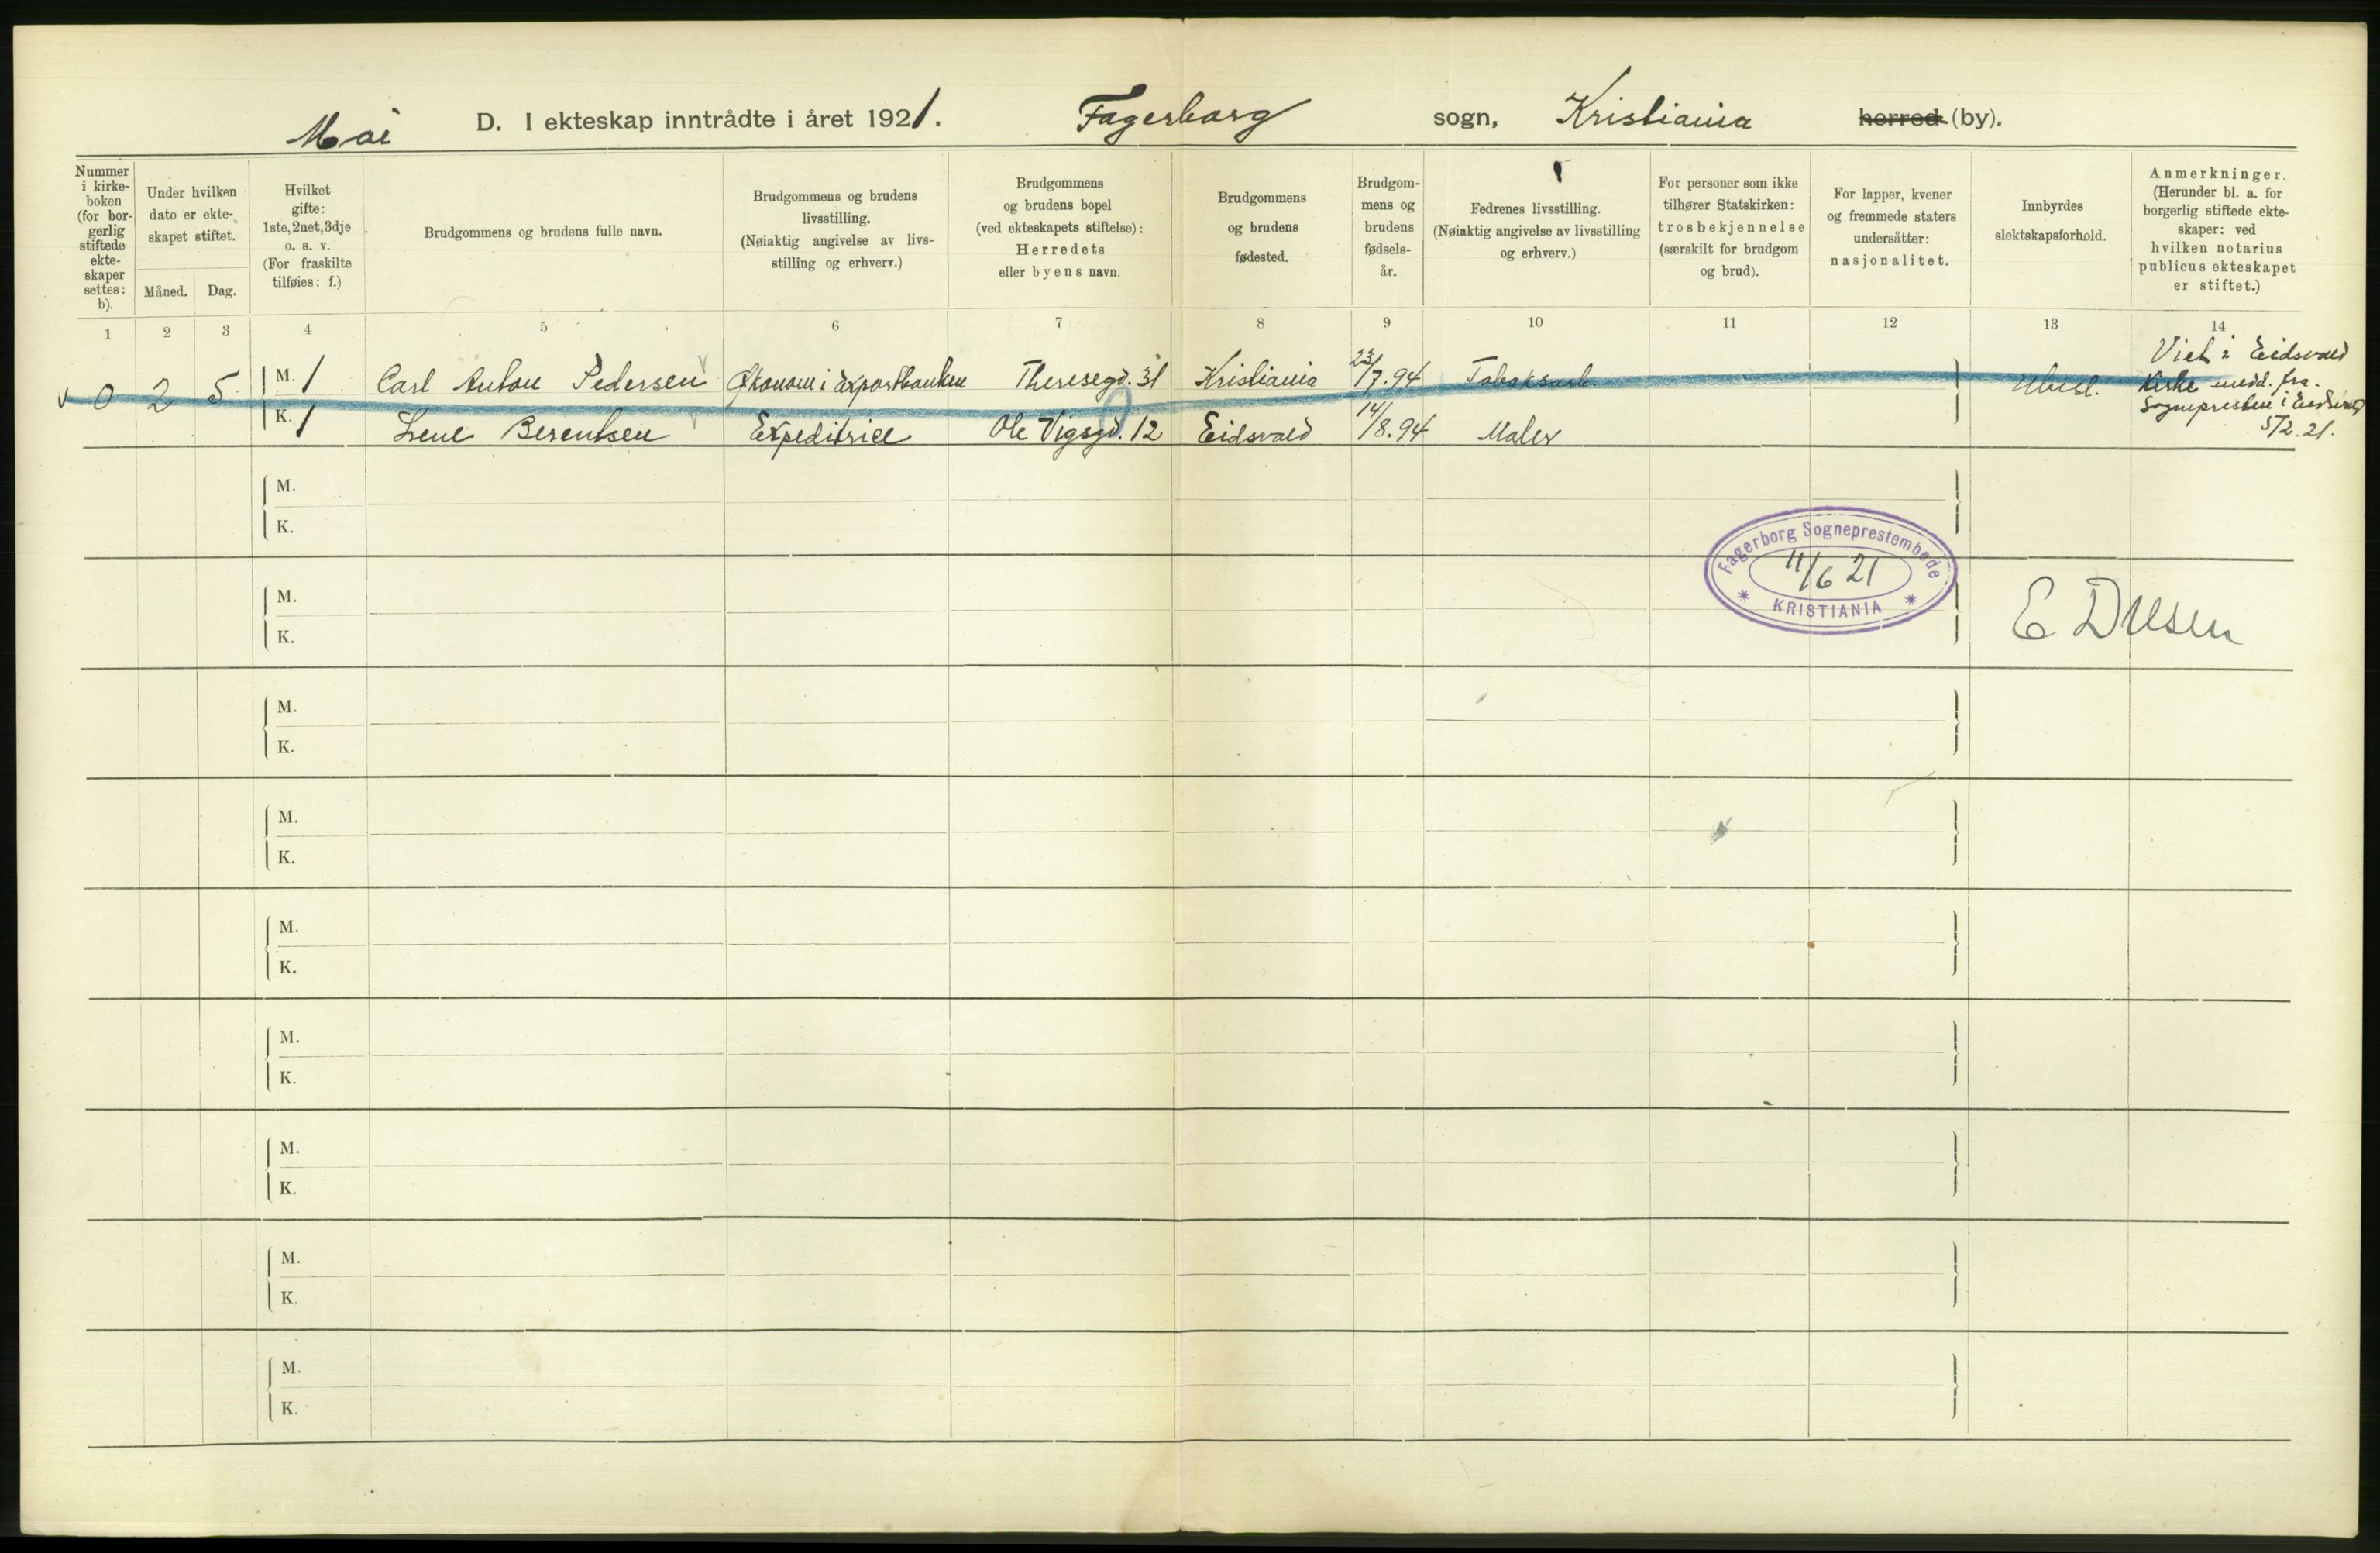 Mai D. I ekteskap inntrådte i året 1921. Fagerborg sogn, Kristiania herred (by).
Nummer
i kirke-
boken
(for bor-
gerlig
stiftede
ekte-
skaper
settes:
b).
Under hvilken
dato er ekte-
skapet stiftet.
Måned. Dag.
Hvilket
gifte:
1ste, 2net, 3dje
o. s. v.
(For fraskilte
tilføies: f.)
Brudgommens og brudens fulle navn.
Brudgommens og brudens
livsstilling.
(Nøiaktig angivelse av livs-
stilling og erhverv.)
Brudgommens
og brudens bopel
(ved ekteskapets stiftelse):
Herredets
eller byens navn.
Brudgommens
og brudens
fødested.
Brudgom-
mens og
brudens
fødsels-
år.
Fedrenes livsstilling.
(Nøiaktig angivelse av livsstilling
og erhverv.)
For personer som ikke
tilhører Statskirken:
trosbekjennelse
(særskilt for brudgom
og brud).
For lapper, kvener
og fremmede staters
undersåtter:
nasjonalitet.
Innbyrdes
slektskapsforhold.
Anmerkninger.
(Herunder bl. a. for
borgerlig stiftede ekte-
skaper: ved
hvilken notarius
publicus ekteskapet
er stiftet.)
1 2 3 4 5 6 7 8 9 10 11 12 13 14
0 2 5 M. 1 Carl Anton Pedersen Økonom i Exportbanken Theresegd. 31 Kristiania 23/7.94 Tobaksarb. Ubesl.
K. 1 Lene Berentsen Expeditrice Ole Vigsgd. 12 Eidsvold 14/8.94 Maler
Viet i Eidsvold
Kirke medd. fra
Sognepresten i Eidsvold
5/2.21.
M.
K.
Fagerborg Sogneprestembede
11/6 21
KRISTIANIA
M.
K.
M.
K.
M.
K.
M.
K.
M.
K.
M.
K.
M.
K.
M.
K.